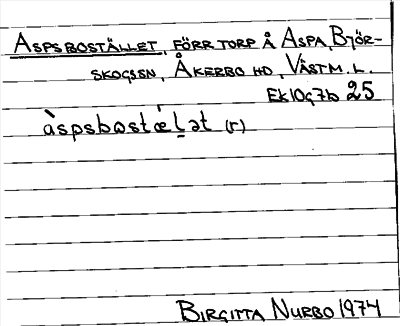 ASPSBOSTÄLLET, FÖRR TORP Å ASPA, BJÖR-
SKOGSSN, ÅKERBO HD, VÄSTM.L.
EK10g7b 25
àspsbɷstǽḷət (r)
BIRGITTA NURBO 1974